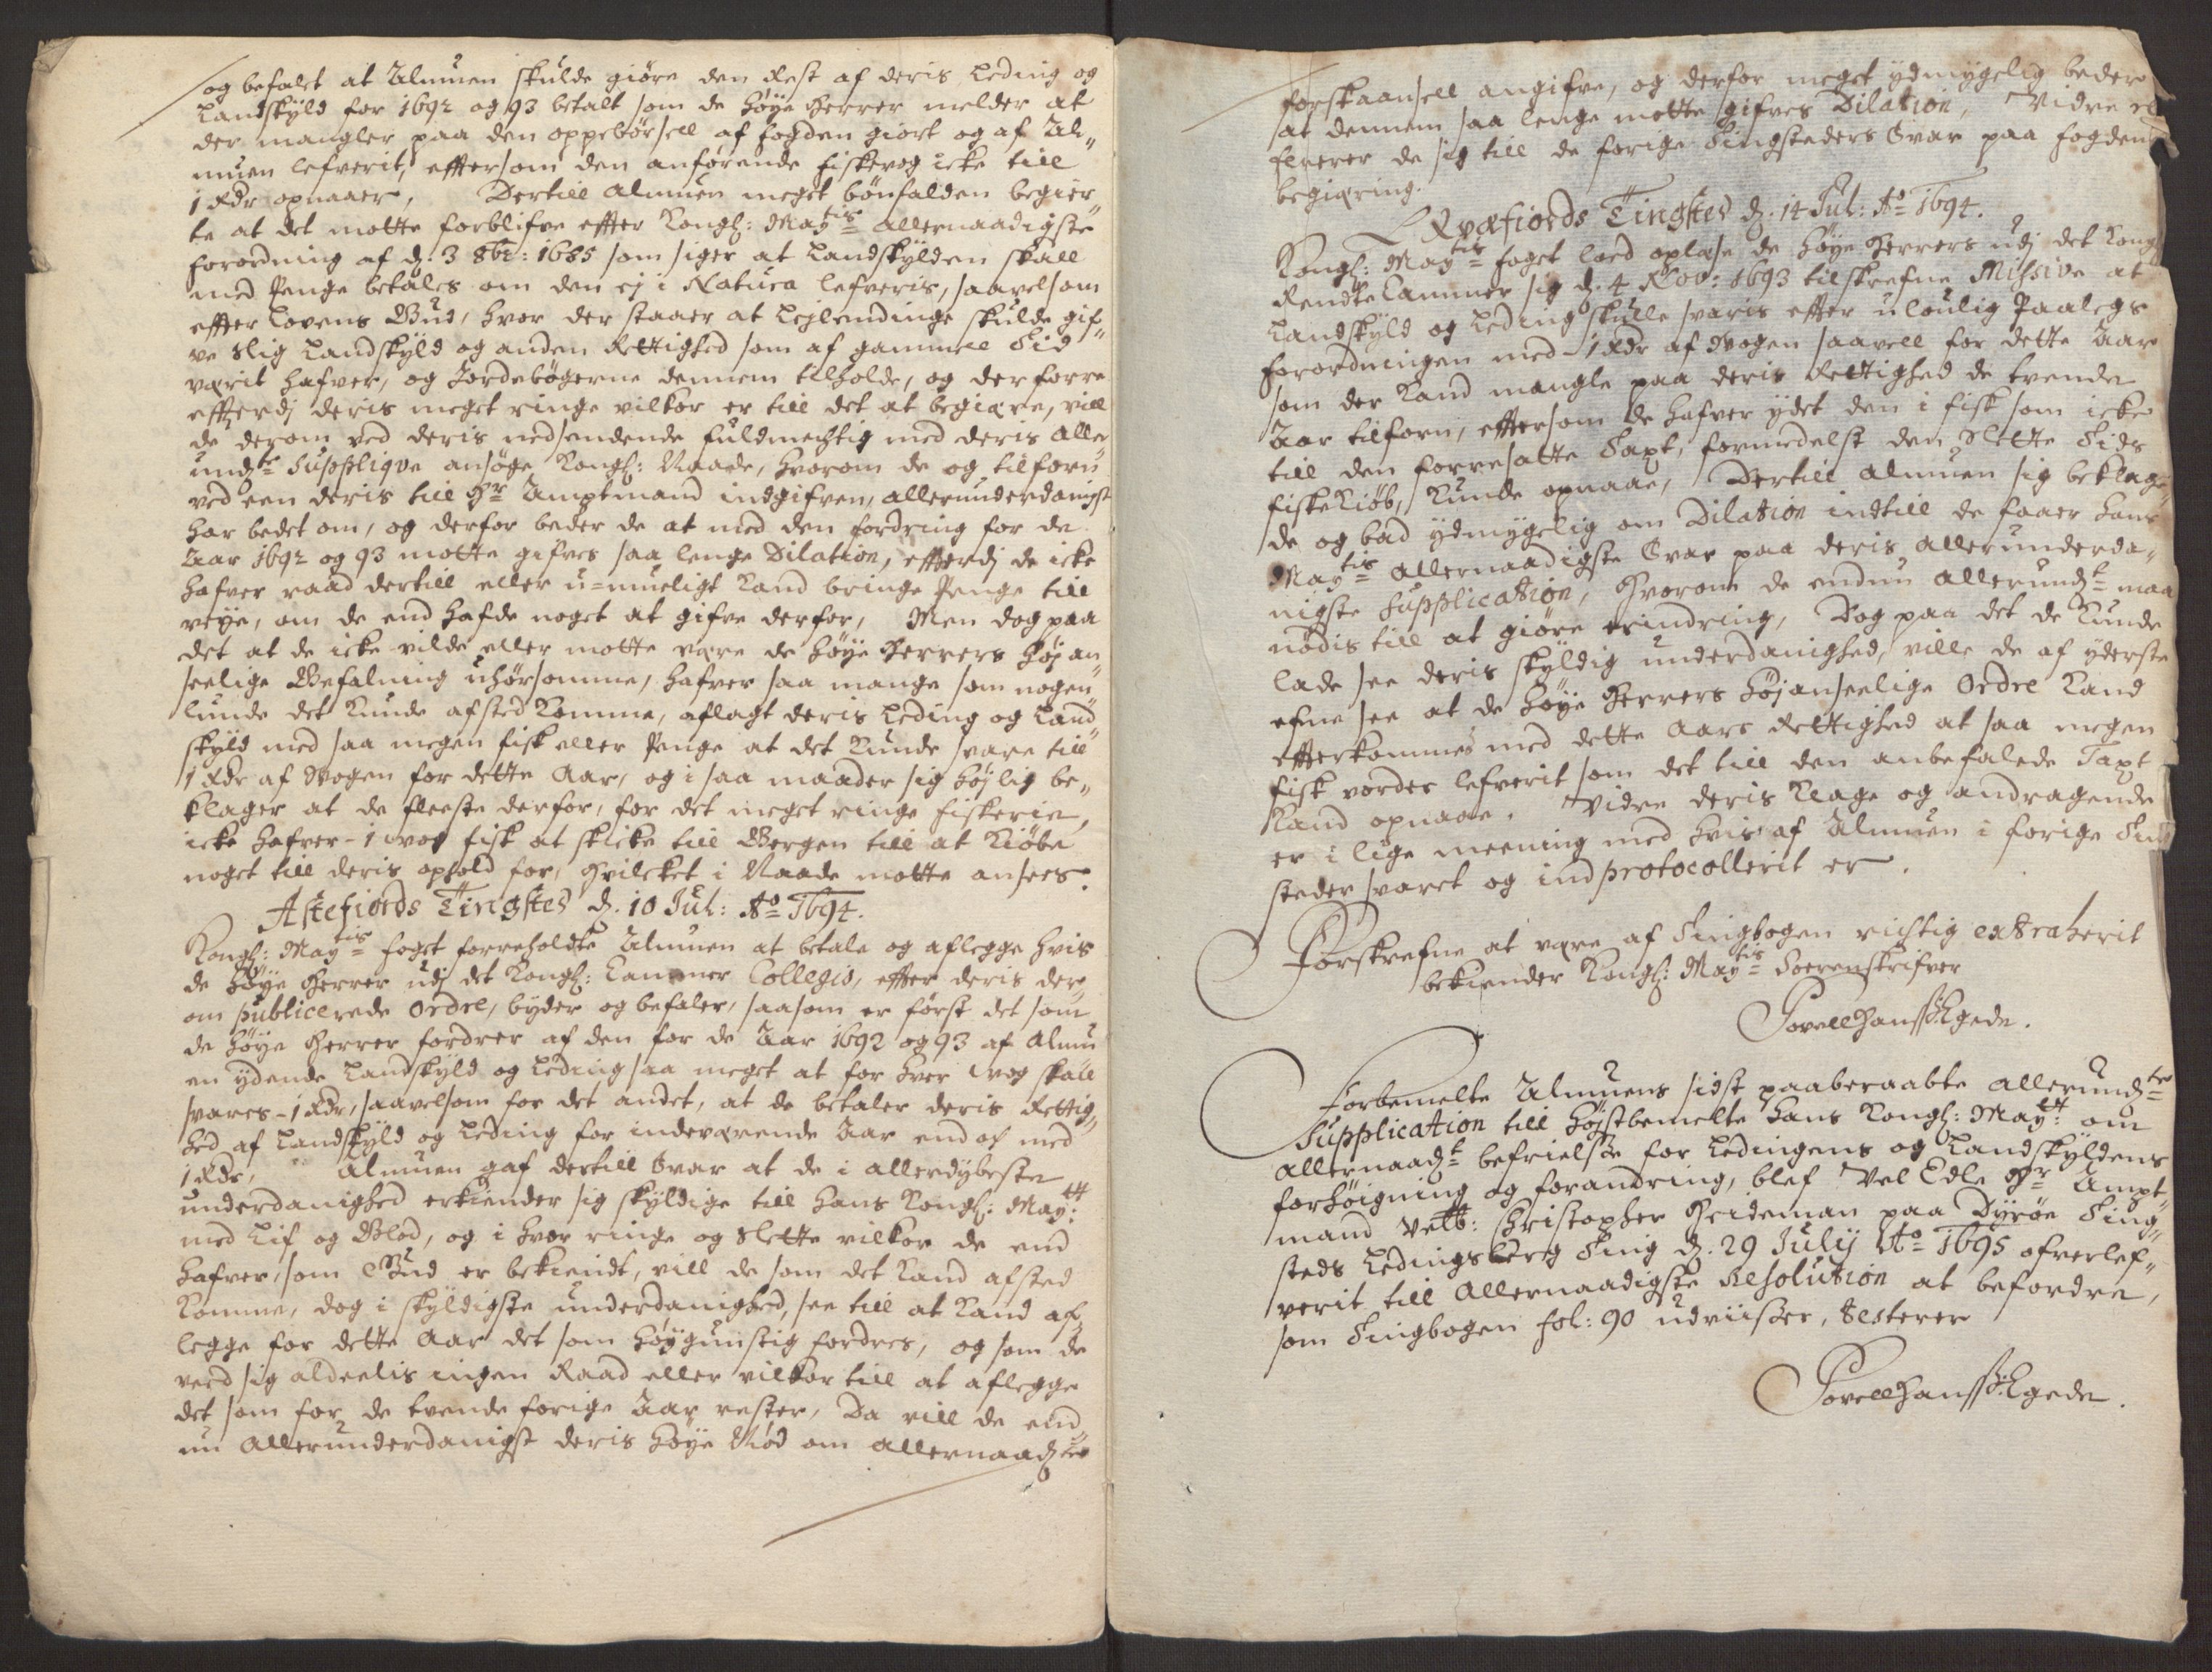 og befalet at Almuen skulde giöre den Rest af deris Leding og
Landskyld for 1692 og 93 betalt som de höye Herrer melder at
der mangler paa den oppebörsell af fogden giort og af Al„
muen lefverit, effter som den anförende fiskevog icke till
1 Rdr opnaaer, Dertill Almuen meget bönfalden begier„
te at det motte forblifve effter Kongl: Maytis allernaadigste
forordning af d. 3 8br: 1685 som siger at Landskylden skall
med Penge betales om den ej i Natura lefveris, saavelsom
effter Lovens Bud, hvor der staaer at Lejlendinge skulde gif„
ve slig Landskyld og anden Rettighed som af gammell Tid
værit hafver, og Jordebögerne dennem tilholde, og derforre
effterdj deris meget ringe vilkor er till det at begiære, vill
de derom ved deris nedsendende fuldmechtig med deris Aller
undte Supplique ansöge Kongl: Naade, hvorom de og tilforn
ved een deris till Hr Amptmand indgifven, allerunderdanigst
har bedet om, og derfor beder de at med den fordring for de
Aar 1692 og 93 motte gifves saa lenge Dilation, effterdj de icke
hafver raad dertill eller u=mueligt kand bringe Penge till
veye, om de end hafde noget at gifve derfor, Men dog paa
det at de icke vilde eller motte være de höye Herrers höj an„
seelige Befalning uhörsomme, hafver saa mange som nogen„
lunde det kunde afsted komme, aflagt deris Leding og Land„
skyld med saa megen fisk eller Penge at det kunde svare till
1 Rdr af Wogen for dette Aar, og i saa maader sig höjlig be„
klager at de fleeste derfor, for det meget ringe fiskerie,
icke hafver - 1 wog fisk at skicke till Bergen till at kiöbe
noget till deris ophold for, hvilcket i Naade motte ansees.
Astefiords Tingsted d. 10 Jul: Ao 1694.
Kongl: Maytis foget forreholdte Almuen at betale og aflegge hvis
de höye Herrer udj det Kongl: Cammer Collegio, effter deris der„
om publicerede Ordre, byder og befaler, saasom er först det som
de höye Herrer fordrer af den for de Aar 1692 og 93 af Almu
en ydende Landskyld og Leding saa meget at for hver wog skall
svares - 1 Rdr, saavelsom for det andet, at de betaler deris Rettig„
hed af Landskyld og Leding for indeværende Aar end og med
1 Rdr, Almuen gaf dertill Svar at de i allerdybeste
underdanighed erkiender sig skyldige till Hans Kongl: Maytt:
med Lif og Blod, og i hvor ringe og slette vilkor de end
hafver, som Gud er bekiendt, vill de som det kand afsted
komme, dog i skyldigste underdanighed, see till at kand af„
legge for dette Aar det som höygunstig fordres, og som de
veed sig aldeelis ingen Raad eller vilkor till at aflegge
det som for de tvende forige Aar rester, Da vill de end„
nu Allerunderdanigst deris höye Nöd om allernaadte
forskaansell angifve, og derfor meget ydmygelig beder
at dennem saa lenge motte gifves Dilation, Vidre re
fererer de sig till de forige Tingsteders Svar paa fogdens
begiæring.
Qvæfiords Tingsted d. 14 Jul: Ao 1694.
Kongl: Maytis foget loed oplæse de höye Herrers udj det Kongl
RendteCammer sig d. 4 Nov: 1693 tilskrefne Missive at
Landskyld og Leding skulle svaris effter uloulig Paalegs
forordningen med - 1 Rdr af Wogen saavell for dette Aar
som der kand mangle paa deris Rettighed de tvende
Aar tilforn, effter som de hafver ydet den i fisk som icke
till den forresatte Taxt, formedelst den slette Tids
fiskekiöb, kunde opnaae, Dertill Almuen sig beklage„
de og bad ydmygelig om Dilation indtill de faaer hans
Maytis allernaadigste Svar paa deris allerunderda„
nigste Supplication, hvorom de endnu allerundt maa
nödis till at giöre erindring, Dog paa det de kunde
lade see deris skyldig underdanighed, ville de af yderste
efne see at de höye Herrers höjanseelige Ordre kand
effterkommes med dette Aars Rettighed at saa megen
fisk vorder lefverit som det till den anbefalede Taxt
kand opnaae. Vidre deris klage og andragende
er i lige meening med hvis af Almuen i forige Ting
steder svaret og indprotocollerit er.
Forskrefne at være af Tingbogen richtig extraherit
bekiender Kongl: Maytis Sorenskrifver
Povell Hanssön Egede.
Forbemelte Almuens sidst paaberaabte allerundte
Supplication till höjstbemelte Hans Kongl: Maytt: om
allernaadt befrielse for Ledingens og Landskyldens
forhöigning og forandring, blef Vel Edle Hr Ampt„
mand Velb: Christopher Heideman paa Dyröe Ting„
steds Ledingsberg Ting d. 29 Julij Ao 1695 ofverlef„
verit till Allernaadigste Resolution at befordre,
som Tingbogen fol: 90 udviiser, testerer
Povell Hanssön Egede.